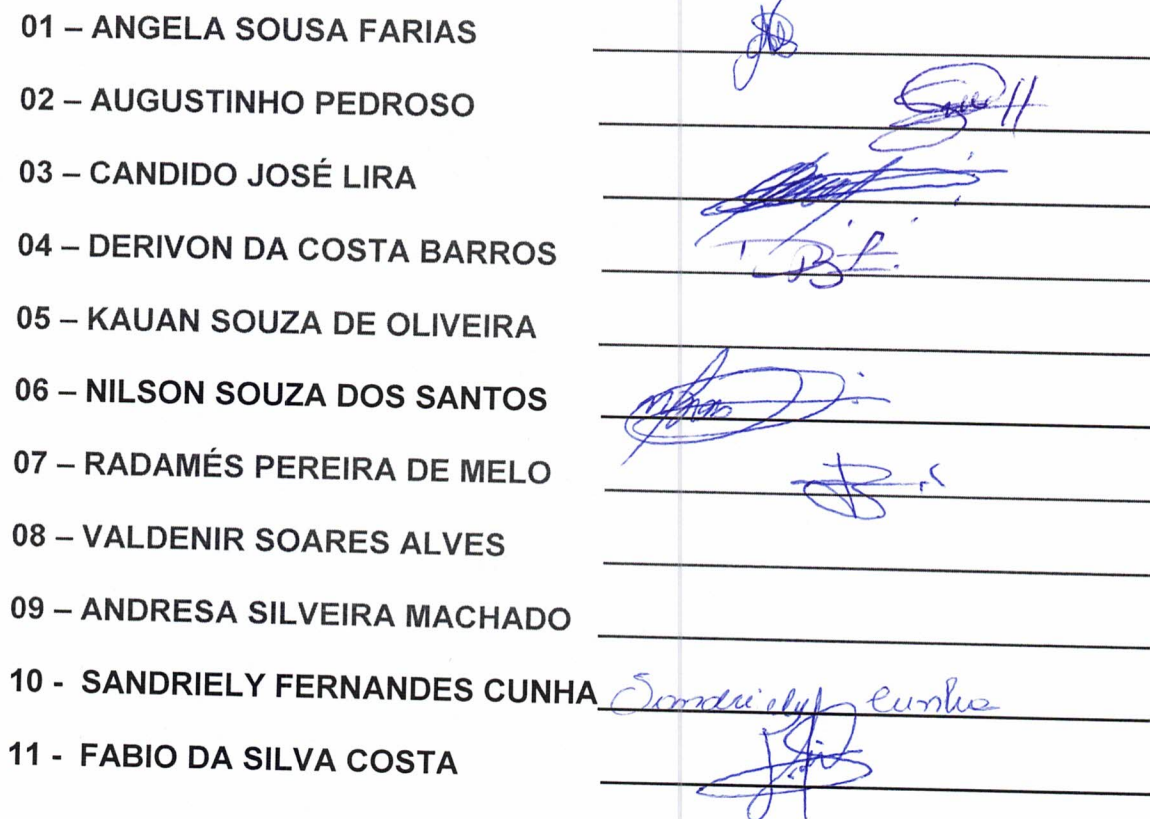 01 – ANGELA SOUSA FARIAS
02 – AUGUSTINHO PEDROSO
03 – CANDIDO JOSÉ LIRA
04 – DERIVON DA COSTA BARROS
05 – KAUAN SOUZA DE OLIVEIRA
06 – NILSON SOUZA DOS SANTOS
07 – RADAMÉS PEREIRA DE MELO
08 – VALDENIR SOARES ALVES
09 – ANDRESA SILVEIRA MACHADO
10 - SANDRIELY FERNANDES CUNHA Sandriely Cunha
11 - FABIO DA SILVA COSTA